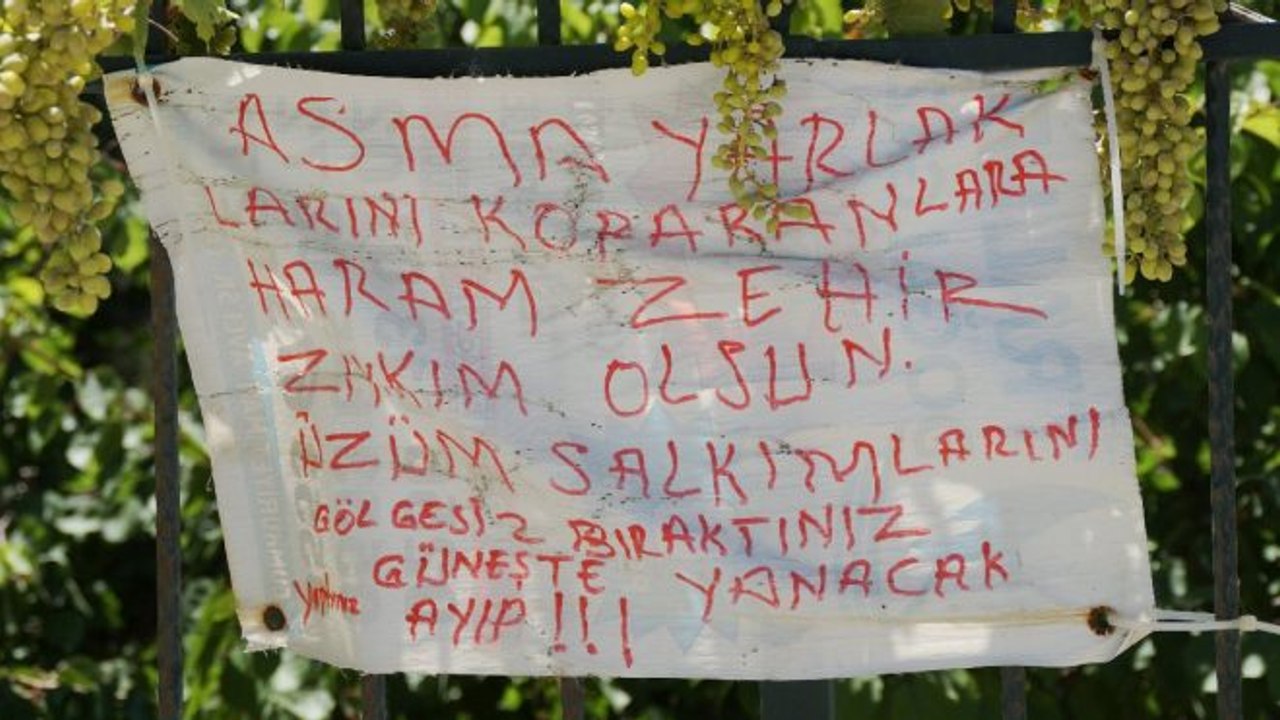 ASMA YARLAK
LARINI KOPARANLARA
HARAM ZEHİR
ZAKIM OLSUN.
ÜZÜM SALKIMLARINI
GÖLGESİZ BIRAKTINIZ
GÜNEŞTE YANACAK
yaptınız AYIP!!!